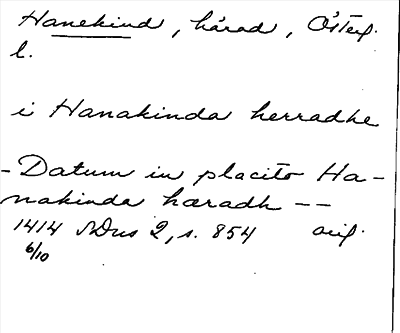 Hanekind, härad, Österg.
l.
i Hanakinda herradhe
- Datum in placito Ha-
nakinda hæradh --
1414 SDns 2, s. 854 orig.
6/10